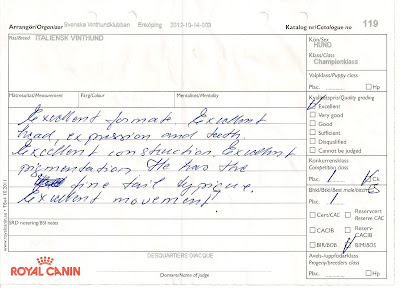 Arrangör/Organizer Svenska Vinthundklubben Enköping 2012-10-14-003 Katalog nr/Catalogue no 119
Ras/Breed ITALIENSK VINTHUND
Kön/Sex
HUND
Klass/Class
Championklass
Valpklass/Puppy class
Plac. Hp
Mätresultat/Measurement Färg/Colour Mentalitet/Mentality
Kvalitetspris/Quality grading
Excellent
Very good
Good
Sufficient
Disqualified
Cannot be judged
Excellent formate Excellent
head, expression and teeth.
Excellent construction. Excellent
pigmentation. He has the
fine tail typique.
Excellent movement
Konkurrensklass
Competition class
Plac. 1 Ck
Plac. 1
Cert/CAC Reservcert
Reserve CAC
CACIB Reserv-
CACIB
BIR/BOB BIM/BOS
SRD notering/BSI notes
Avels-/uppfödarklass
Progeny/breeders class
Plac. Hp
ROYAL CANIN
DESQUARTIERS CIVICQUE
Domare/Name of judge